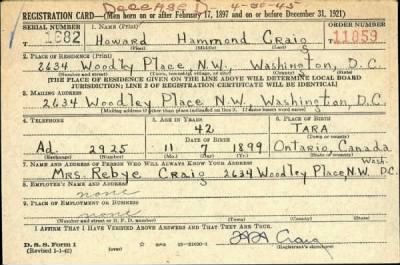 DECEASED 4-30-45
REGISTRATION CARD—(Men born on or after February 17, 1897 and on or before December 31, 1921)
SERIAL NUMBER 1. NAME (Print) ORDER NUMBER
1682 Howard Hammond Craig 11859
(First) (Middle) (Last)
2. PLACE OF RESIDENCE (Print)
2634 Woodley Place, N.W., Washington, D.C.
(Number and street) (Town, township, village, or city) (County) (State)
[THE PLACE OF RESIDENCE GIVEN ON THE LINE ABOVE WILL DETERMINE LOCAL BOARD
JURISDICTION; LINE 2 OF REGISTRATION CERTIFICATE WILL BE IDENTICAL]
3. MAILING ADDRESS
2634 Woodley Place N.W. Washington, D.C.
[Mailing address if other than place indicated on line 2. If same insert word same]
4. TELEPHONE 5. AGE IN YEARS 6. PLACE OF BIRTH
42 TARA
DATE OF BIRTH (Town or county)
Ad. 2925 11 7 1899 Ontario, Canada
(Exchange) (Number) (Mo.) (Day) (Yr.) (State or country)
7. NAME AND ADDRESS OF PERSON WHO WILL ALWAYS KNOW YOUR ADDRESS
Wash.
Mrs. Rebye Craig 2634 Woodley Place, N.W. D.C.
8. EMPLOYER'S NAME AND ADDRESS
none
9. PLACE OF EMPLOYMENT OR BUSINESS
none
(Number and street or R. F. D. number) (Town) (County) (State)
I AFFIRM THAT I HAVE VERIFIED ABOVE ANSWERS AND THAT THEY ARE TRUE.
D. S. S. Form 1
(Revised 1-1-42) 16—21630-1 HH Craig
(Registrant's signature)